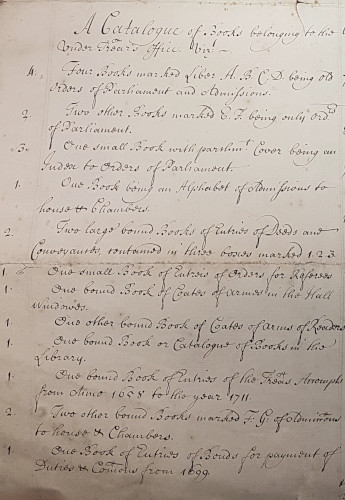 A Catalogue of Books belonging to the
Under Treãrs Office. Vizt.
4. Four Books marked Liber A. B. C. D. being old
Orders of Parliament and Admissions.
2. Two other Books marked E. F. being only Ordrs
of Parliament.
3. One small Book with parchmt. Cover being an
Index to Orders of Parliament.
1. One Book being an Alphabet of Admissions to
house & Chambers.
2. Two large bound Books of Entries of Deeds and
Conveyances, contained in three boxes marked 1.2.3.
1. One small Book of Entries of Orders for Referees
1. One bound Book of Coates of armes in the Hall
Windowes.
1. One other bound Book of Coates of Arms of Readers
1. One bound Book or Catalogue of Books in the
Library.
1. One bound Book of Entries of the Treãrs Accompts
from Anno 1658 to the year 1711.
2. Two other bound Books marked F. G. of Admissions
to house & Chambers.
1. One Book of Entries of Bonds for payment of
Duties & Comons from 1699.